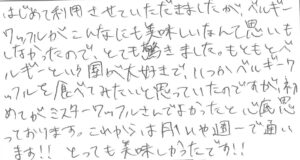 はじめて利用させていただきましたが、ベルギー
ワッフルがこんなにも美味しいなんて思いも
しなかったので、とても驚きました。もともとベ
ルギーという国が大好きで、いつかベルギーワ
ッフルを食べてみたいと思っていたのですが、初
めてがミスターワッフルさんでよかったと心底思
っております。これからは月1いや週一で通い
ます!! とっても美味しかったです!!